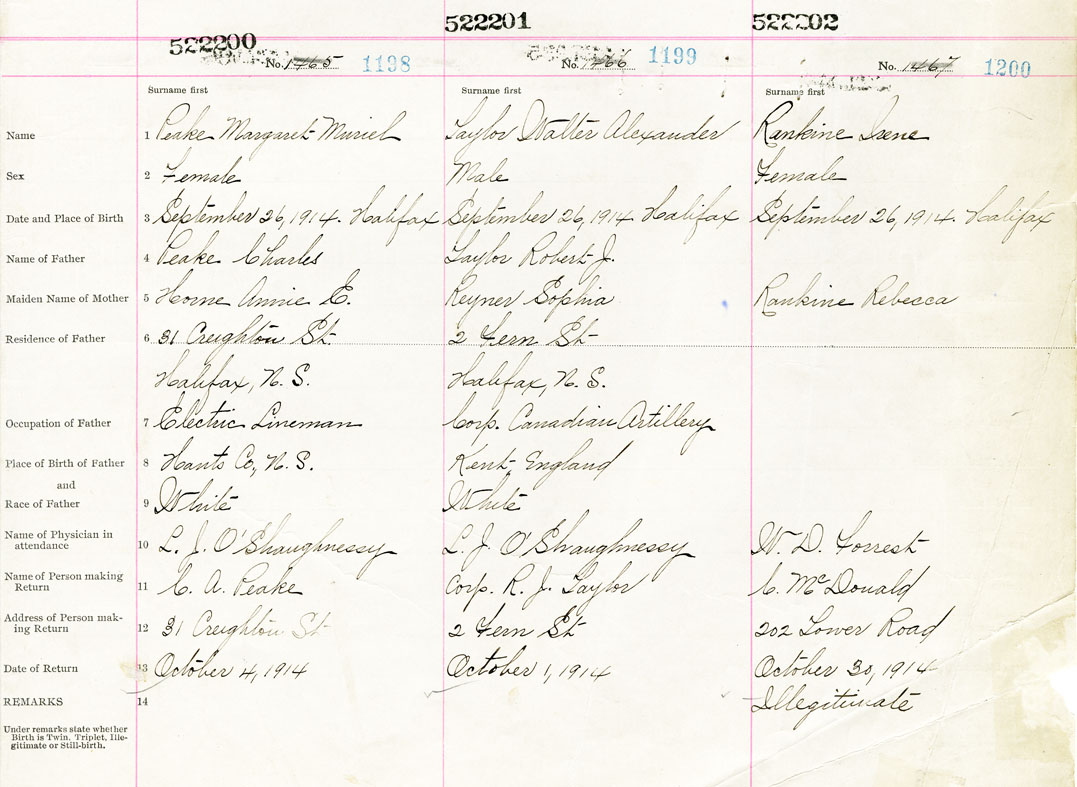 522200 522201 522202
No. 1465 1198 No. 1466 1199 No. 1467 1200
Surname first Surname first Surname first
Name 1 Peake Margaret Muriel Taylor Walter Alexander Rankine Irene
Sex 2 Female Male Female
Date and Place of Birth 3 September 26, 1914. Halifax September 26, 1914. Halifax September 26, 1914. Halifax
Name of Father 4 Peake Charles Taylor Robert J.
Maiden Name of Mother 5 Horne Annie E. Reyner Sophia Rankine Rebecca
Residence of Father 6 31 Creighton St. 2 Fern St
Halifax, N. S. Halifax, N. S.
Occupation of Father 7 Electric Lineman Corp. Canadian Artillery
Place of Birth of Father 8 Hants Co, N. S. Kent, England
and
Race of Father 9 White White
Name of Physician in
attendance 10 L. J. O'Shaughnessy L. J. O'Shaughnessy W. D. Forrest
Name of Person making
Return 11 C. A. Peake Corp. R. J. Taylor C. McDonald
Address of Person mak-
ing Return 12 31 Creighton St 2 Fern St 202 Lower Road
Date of Return 13 October 4, 1914 October 1, 1914 October 30, 1914
REMARKS 14 Illegitimate
Under remarks state whether
Birth is Twin. Triplet, Ille-
gitimate or Still-birth.